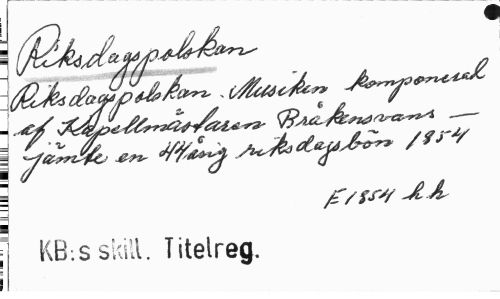 Riksdagspolskan
Riksdagspolskan. Musiken komponerad
af Kapellmästaren Bråkensvans —
jämte en 44årig riksdagsbön 1854
E1854 h.h
KB:s skill. Titelreg.